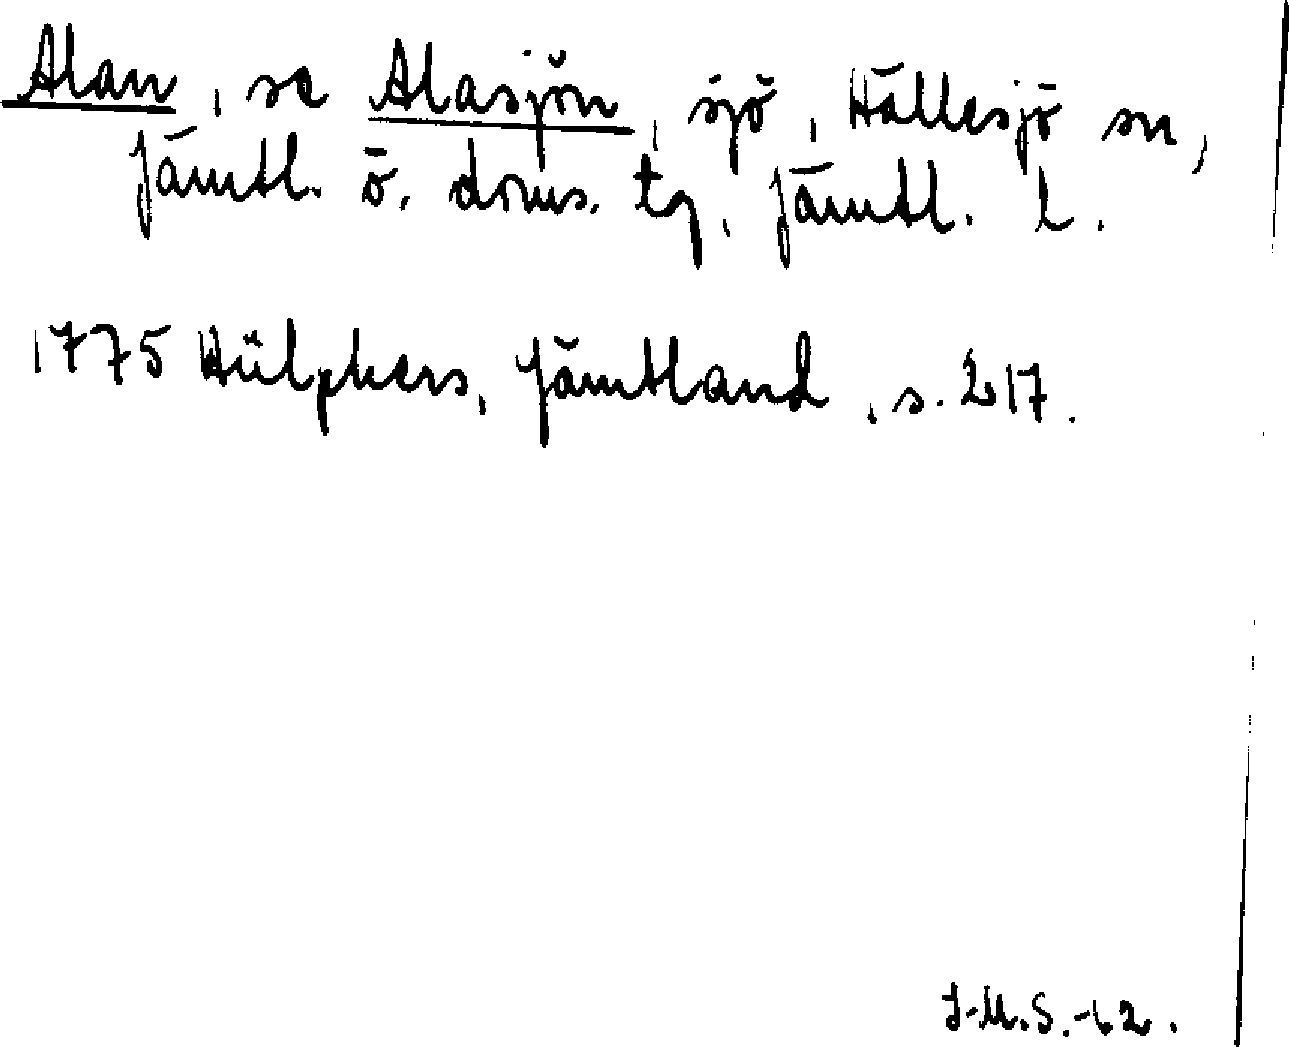 Alan, se Alasjön, sjö, Hällesjö sn,
Jämtl. ö. doms. tg, Jämtl. l.
1775 Hülphers, Jämtland, s. 217.
J.M.S.-62.